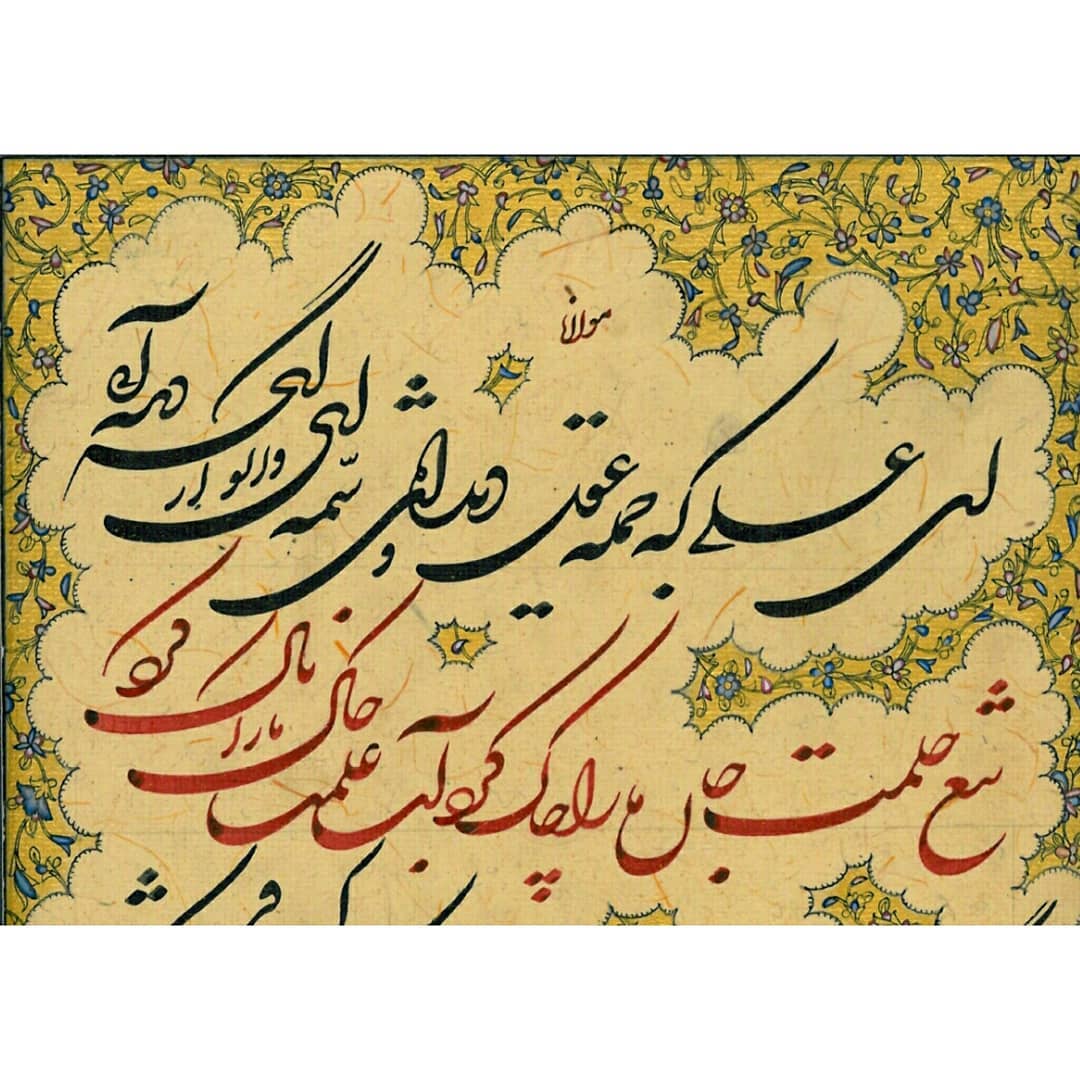 مولانا
ای علی که جمله عقل و دیده‌ای شمّه‌ای واگو از آنچه دیده‌ای
تیغ حلمت جان ما را چاک کرد آب علمت خاک ما را پاک کرد